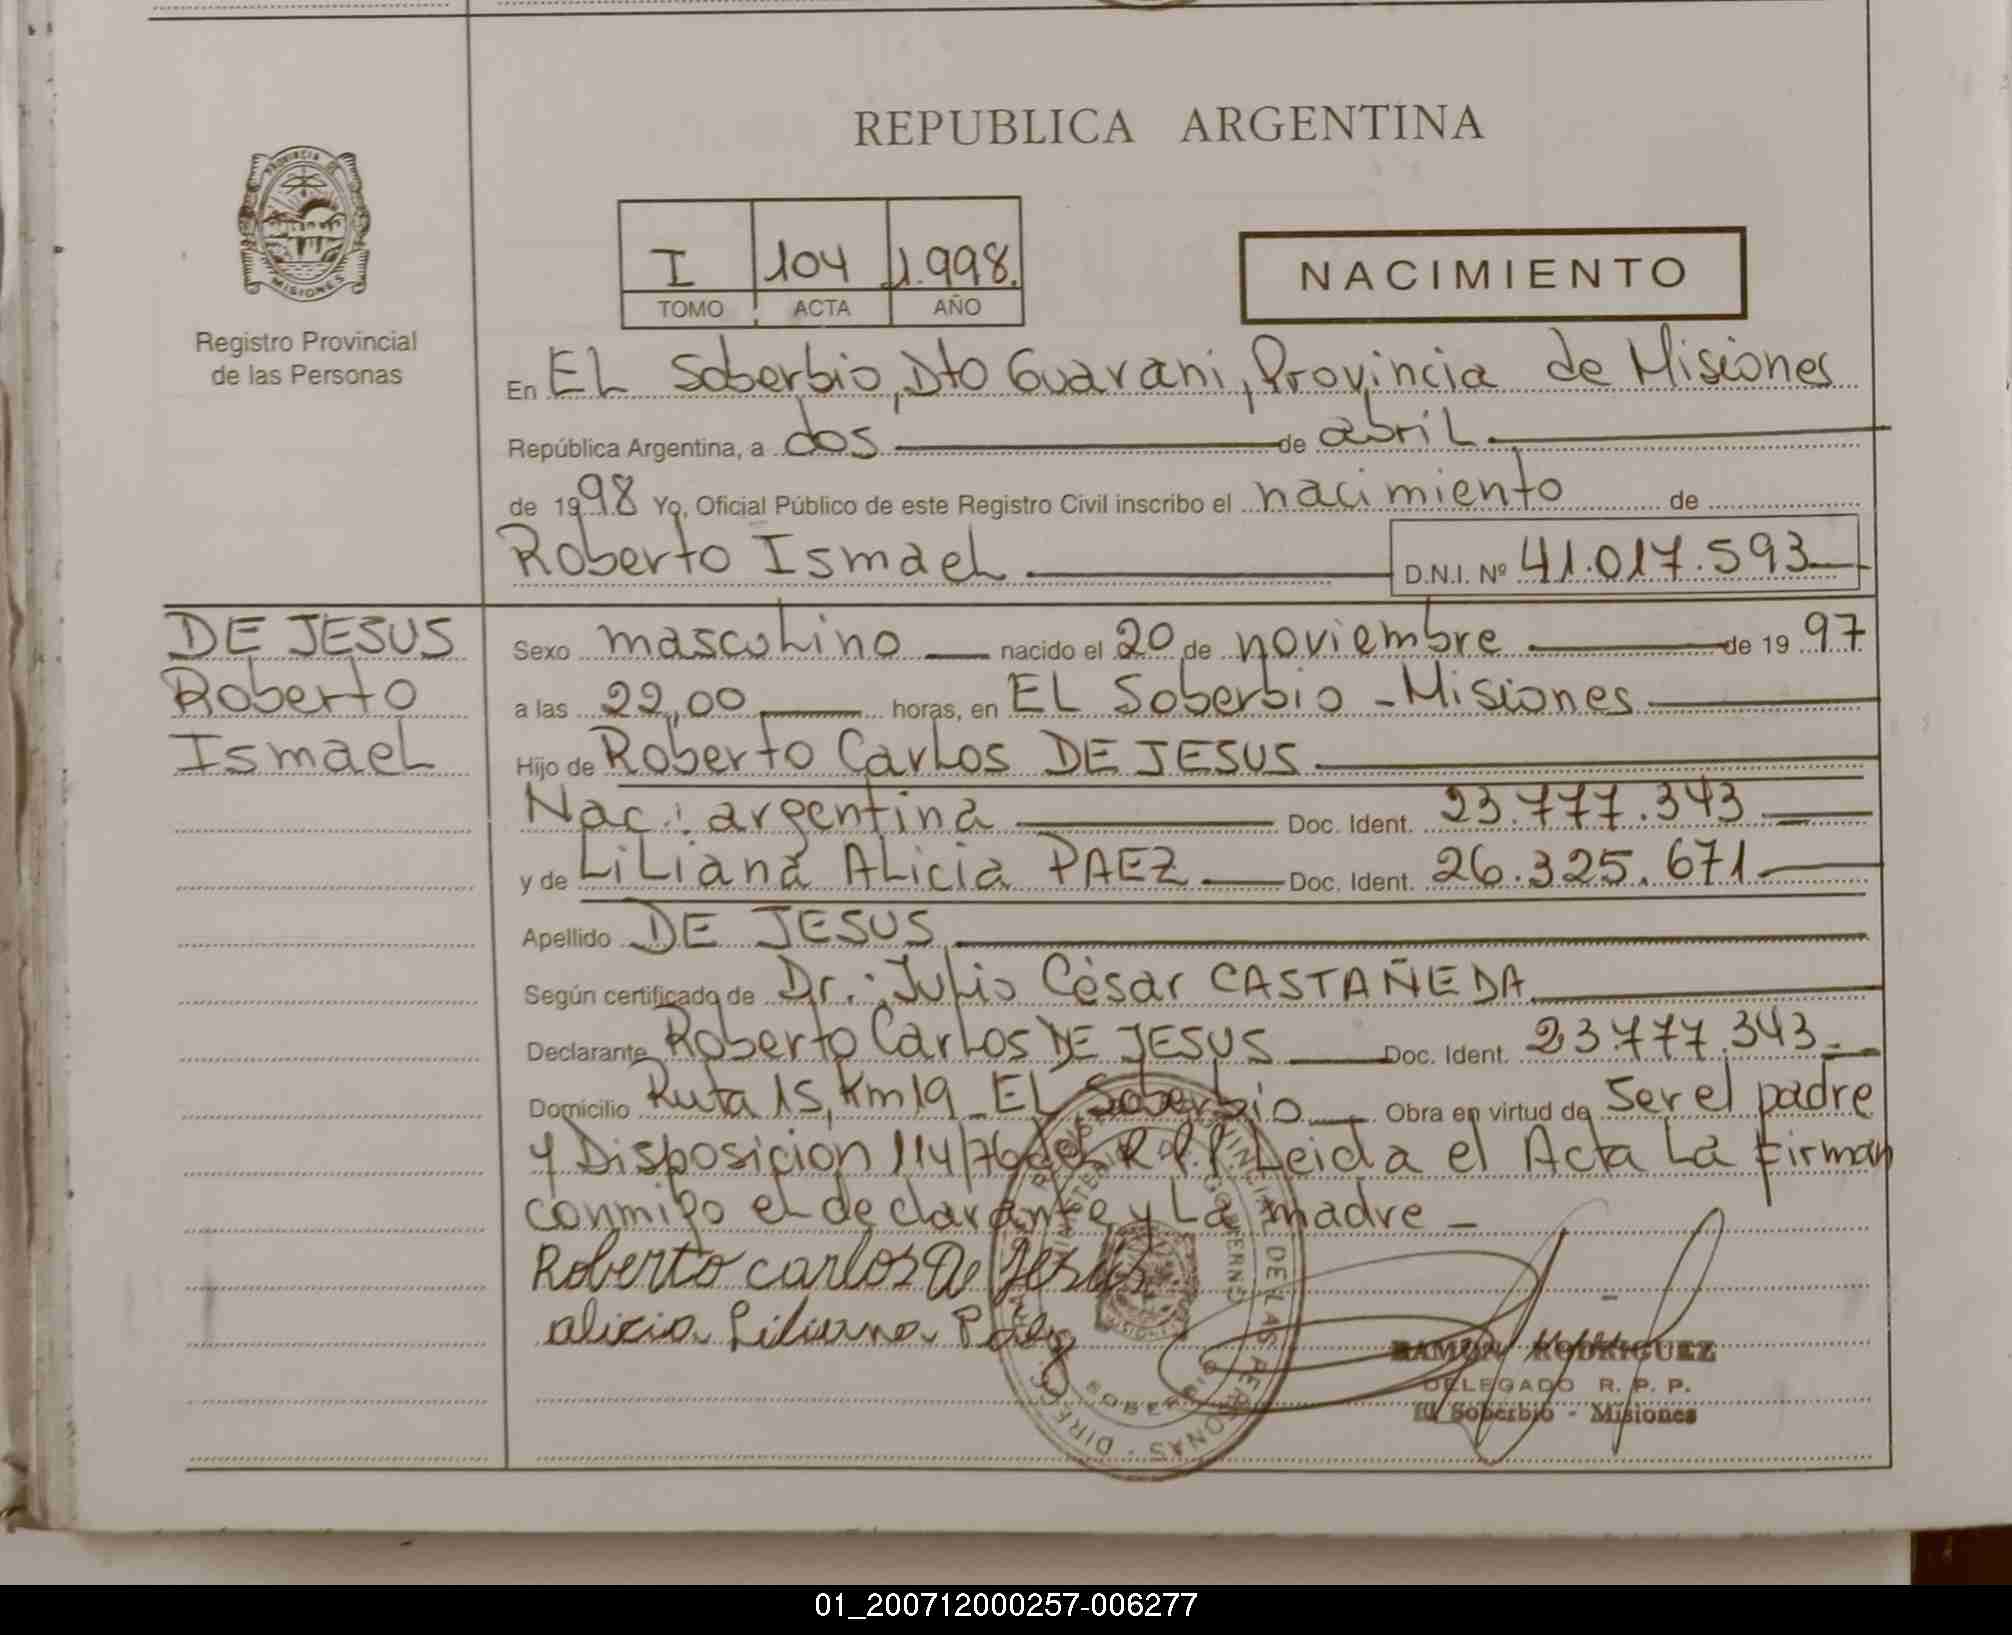 REPUBLICA ARGENTINA
PROVINCIA DE
MISIONES
Registro Provincial
de las Personas
I 104 1.998.
TOMO ACTA AÑO
NACIMIENTO
En EL Soberbio, Dto Guarani, Provincia de Misiones
República Argentina, a dos de abril
de 1998 Yo, Oficial Público de este Registro Civil inscribo el nacimiento de
Roberto Ismael D.N.I. Nº 41.017.593
DE JESUS
Roberto
Ismael
Sexo masculino nacido el 20 de noviembre de 1997
a las 22,00 horas, en EL Soberbio - Misiones
Hijo de Roberto Carlos DE JESUS
Nac.: argentina Doc. Ident. 23.777.343
y de Liliana Alicia PAEZ Doc. Ident. 26.325.671
Apellido DE JESUS
Según certificado de Dr.: Julio César CASTAÑEDA
Declarante Roberto Carlos DE JESUS Doc. Ident. 23.777.343
Domicilio Ruta 15, Km 19 - EL Soberbio Obra en virtud de Ser el padre
y Disposicion 114/76 del R.P.P. Leida el Acta La firman
conmigo el declarante y La madre -
Roberto carlos De Jesús
alicia Liliana Paez
RAMON RODRIGUEZ
DELEGADO R. P. P.
El Soberbio - Misiones
01_200712000257-006277